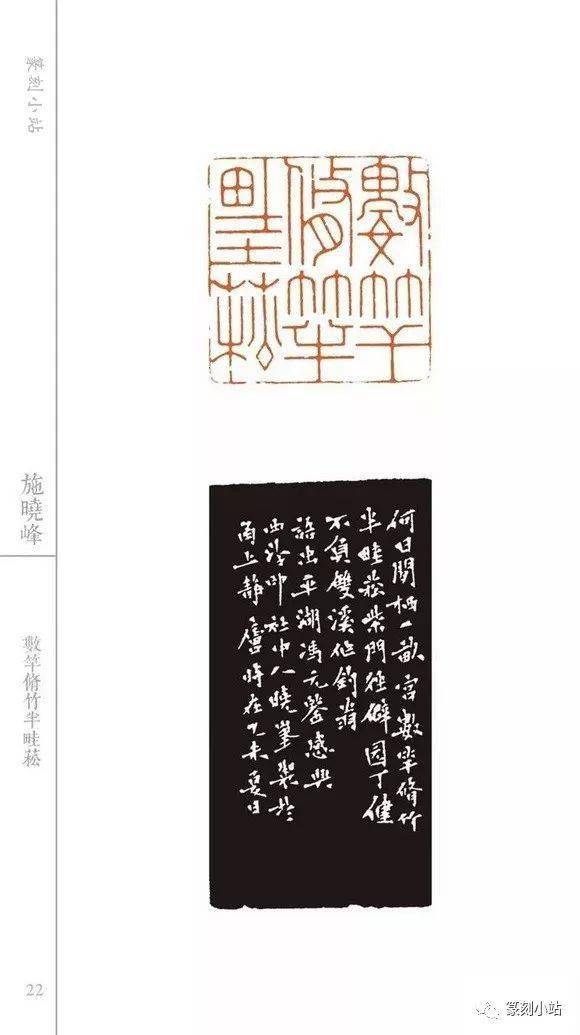 篆刻小站
施曉峰
數竿脩竹半畦菘
22
數竿
脩竹半
畦菘
何日閒栖一畝宮數竿脩竹
半畦菘柴門徑僻園丁健
不負雙溪作釣翁
語出平湖馮元 感興
西泠印社中人曉峯製於
甬上靜 時在乙未夏日
篆刻小站